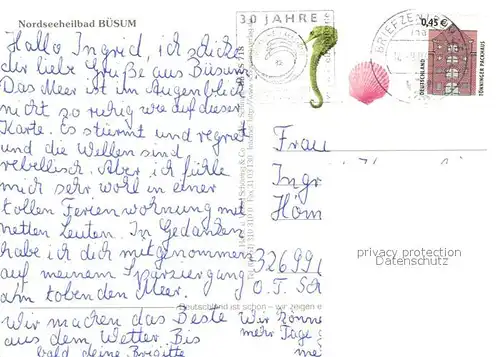 Nordseeheilbad BÜSUM
30 JAHRE
BRIEFZENTRUM
0,45 €
DEUTSCHLAND
TÖNNINGER PACKHAUS
Hallo Ingrid, ich schicke
dir liebe Grüße aus Büsum.
Das Meer ist im Augenblick
nicht so ruhig wie auf dieser
Karte. Es stürmt und regnet
und die Wellen sind
rebellisch. Aber ich fühle
mich sehr wohl in einer
tollen Ferienwohnung mit
netten Leuten. In Gedanken
habe ich dich mitgenommen
auf meinem Spaziergang
am tobenden Meer.
Wir machen das Beste
aus dem Wetter. Bis
bald deine Brigitte
Wir könne
mehr Tage
me
Frau
Ingr
Höm
32699
O.T. Sch
Deutschland ist schön – wir zeigen e
privacy protection
Datenschutz